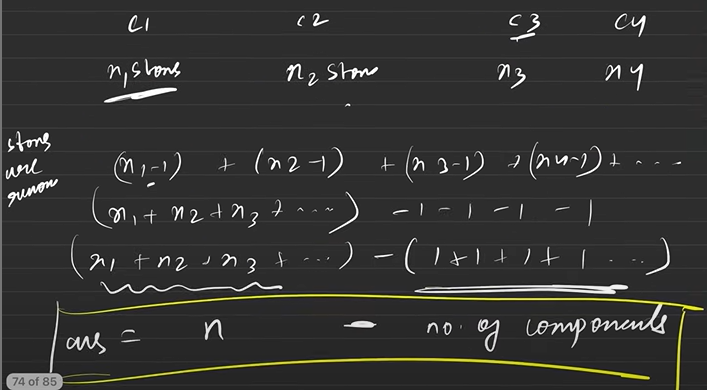 C1 C2 C3 C4
n1 stons n2 ston n3 n4
stons
are
(n1-1) + (n2-1) + (n3-1) + (n4-1) + ....
(n1 + n2 + n3 + ...) -1 -1 -1 -1
(n1 + n2 + n3 + ...) - (1+1+1+1 ...)
ans = n - no. of components
74 of 85